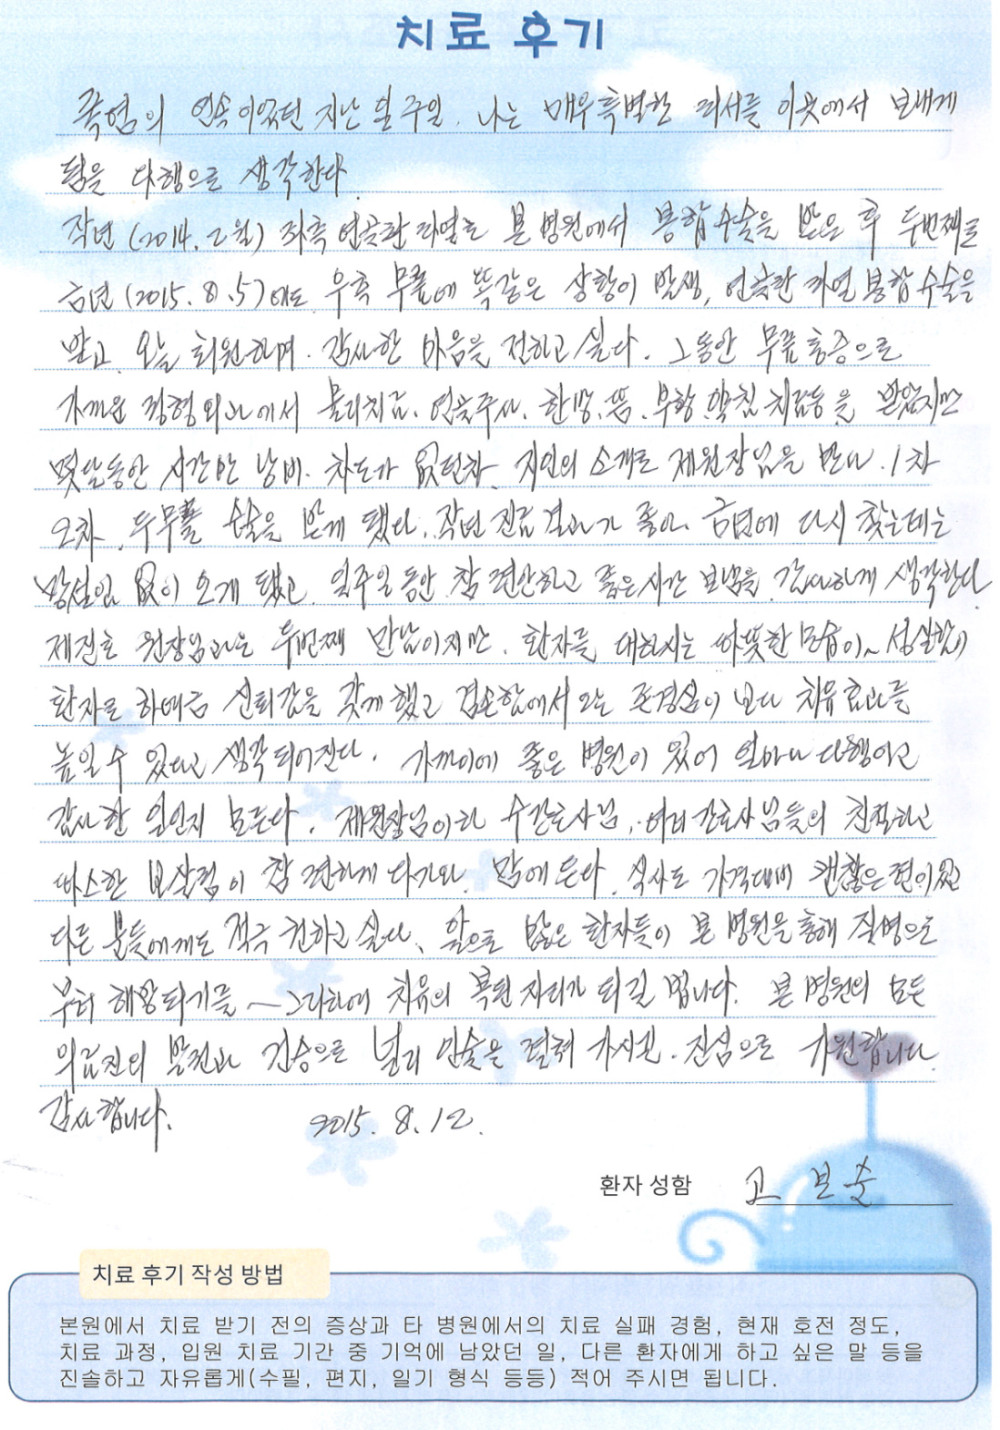 치료 후기
폭염의 연속이었던 지난 일주일. 나는 매우 특별한 피서를 이곳에서 보내게
됨을 다행으로 생각한다.
작년 (2014. 2월) 좌측 연골판 파열로 본 병원에서 봉합수술을 받은 후 두번째로
금년 (2015. 8. 5)에도 우측 무릎에 똑같은 상황이 발생, 연골판 파열 봉합수술을
받고 오늘 퇴원하며. 감사한 마음을 전하고 싶다. 그동안 무릎통증으로
가까운 정형외과에서 물리치료. 연골주사. 한방. 뜸. 부항. 약침 치료등을 받았지만
몇달동안 시간만 낭비. 차도가 없던차. 지인의 소개로 제원장님을 만나. 1차
2차. 두무릎 수술을 받게 됐다. 작년 진료결과가 좋아. 금년에 다시 찾는데는
망설임 없이 오게 됐고. 일주일동안 참 편안하고 좋은시간 보냄을 감사하게 생각한다.
제진호 원장님과는 두번째 만남이지만. 환자를 대하시는 따뜻한 모습이~ 성실함이
환자로 하여금 신뢰감을 갖게 했고 겸손함에서 오는 존경심이 보다 치유효과를
높일 수 있다고 생각되어진다. 가까이에 좋은 병원이 있어 얼마나 다행이고
감사한 일인지 모른다. 제원장님이하 수간호사님, 여러 간호사님들의 친절하고
따스한 보살핌이 참 편하게 다가와. 맘에 든다. 식사도 가격대비 괜찮은 편이었고
다른 분들에게도 적극 권하고 싶다. 앞으로 많은 환자들이 본 병원을 통해 질병으로
부터 해방되기를 ~ 그리하여 치유의 복된 자리가 되길 빕니다. 본 병원의 모든
의료진의 발전과 건승으로 널리 인술을 펼쳐 가시길. 진심으로 기원합니다.
감사합니다. 2015. 8. 12.
환자 성함 고 보 순
치료 후기 작성 방법
본원에서 치료 받기 전의 증상과 타 병원에서의 치료 실패 경험, 현재 호전 정도,
치료 과정, 입원 치료 기간 중 기억에 남았던 일, 다른 환자에게 하고 싶은 말 등을
진솔하고 자유롭게(수필, 편지, 일기 형식 등등) 적어 주시면 됩니다.